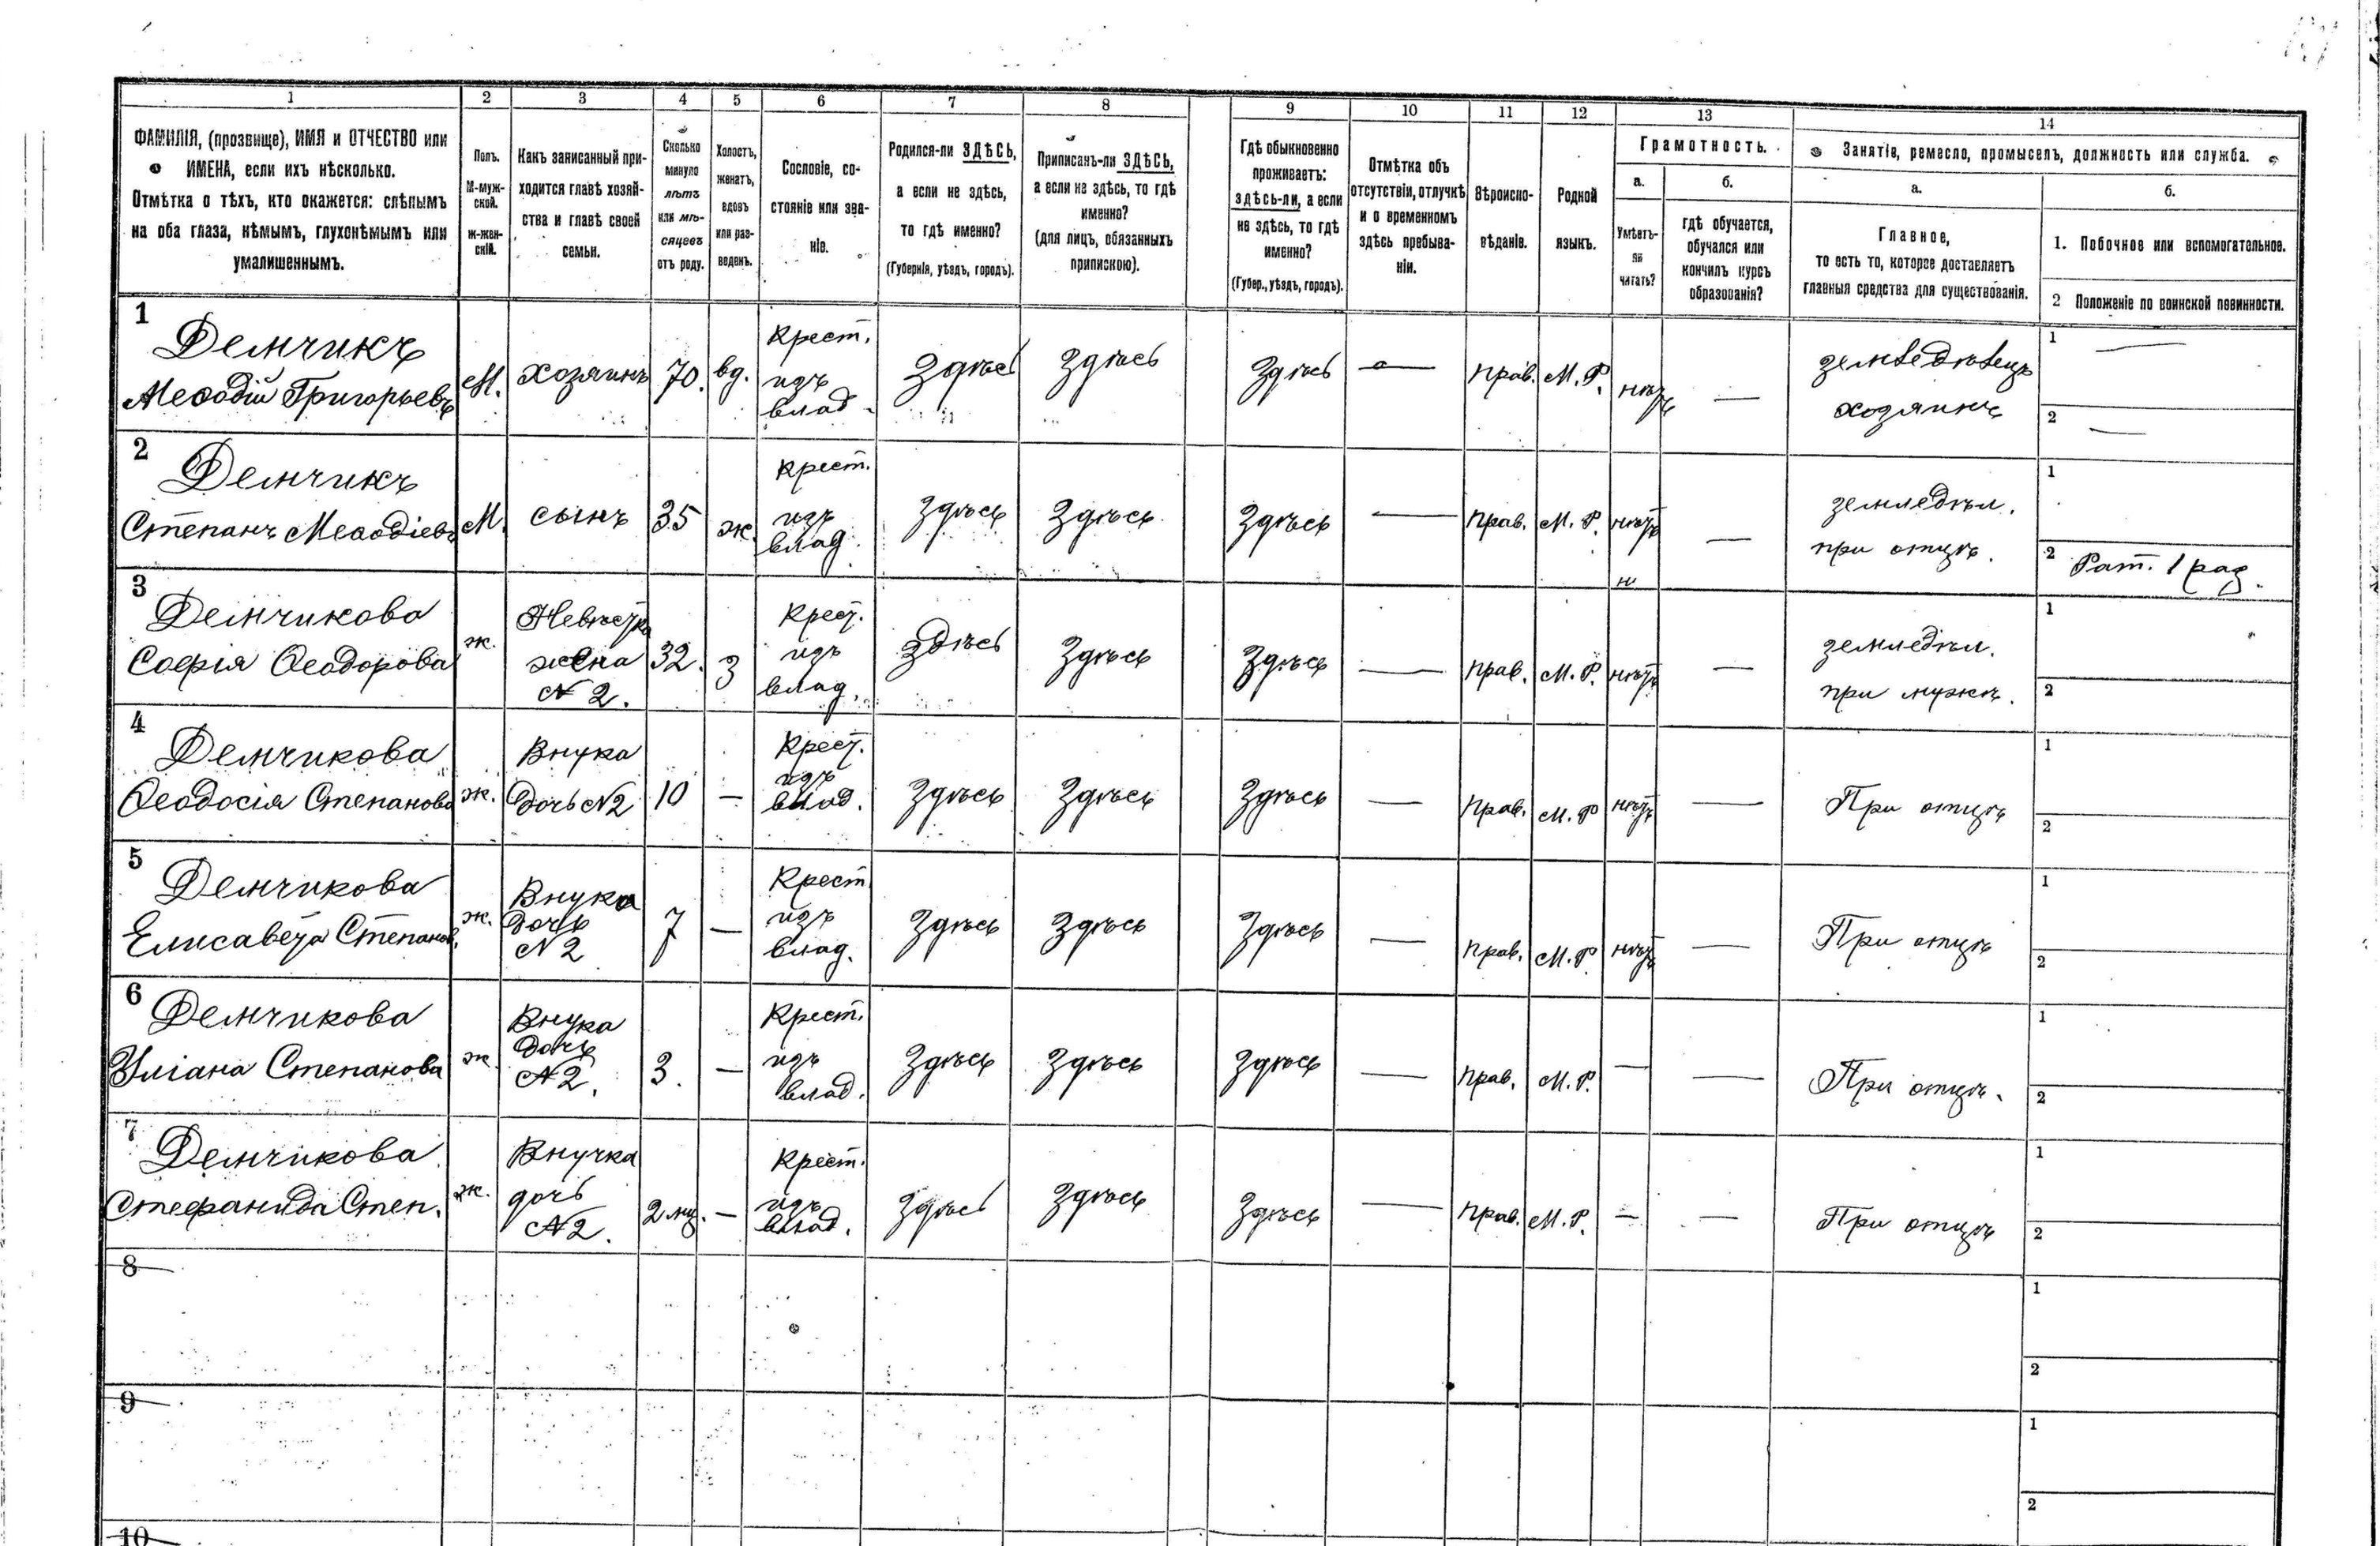 1 2 3 4 5 6 7 8 9 10 11 12 13 14
ФАМИЛІЯ, (прозвище), ИМЯ и ОТЧЕСТВО или
ИМЕНА, если ихъ нѣсколько.
Отмѣтка о тѣхъ, кто окажется: слѣпымъ
на оба глаза, нѣмымъ, глухонѣмымъ или
умалишеннымъ.
Полъ.
М-муж-
ской.
ж-жен-
скій.
Какъ записанный при-
ходится главѣ хозяй-
ства и главѣ своей
семьи.
Сколько
минуло
лѣтъ
или мѣ-
сяцевъ
отъ роду.
Холостъ,
женатъ,
вдовъ
или раз-
веденъ.
Сословіе, со-
стояніе или зва-
ніе.
Родился-ли ЗДѢСЬ,
а если не здѣсь,
то гдѣ именно?
(Губернія, уѣздъ, городъ).
Приписанъ-ли ЗДѢСЬ,
а если не здѣсь, то гдѣ
именно?
(для лицъ, обязанныхъ
припискою).
Гдѣ обыкновенно
проживаетъ:
здѣсь-ли, а если
не здѣсь, то гдѣ
именно?
(Губер., уѣздъ, городъ).
Отмѣтка объ
отсутствіи, отлучкѣ
и о временномъ
здѣсь пребыва-
ніи.
Вѣроиспо-
вѣданіе.
Родной
языкъ.
Грамотность.
а.
Умѣетъ-
ли
читать?
б.
гдѣ обучается,
обучался или
кончилъ курсъ
образованія?
Занятіе, ремесло, промыселъ, должность или служба.
а.
Главное,
то есть то, которое доставляетъ
главныя средства для существованія.
б.
1. Побочное или вспомогательное.
2 Положеніе по воинской повинности.
1
Демчикъ
Меѳодій Григорьевъ
М.
хозяинъ
70.
вд.
Крест.
изъ
влад.
Здѣсь
Здѣсь
Здѣсь
—
Прав.
М. Р.
нѣтъ
—
земледѣлецъ
хозяинъ
1 —
2 —
2
Демчикъ
Степанъ Меѳодіевъ
М.
сынъ
35
ж.
Крест.
изъ
влад.
Здѣсь
Здѣсь
Здѣсь
—
Прав.
М. Р.
нѣтъ
—
земледѣл.
при отцѣ.
1
2 Рат. 1 раз.
3
Демчикова
Софія Ѳеодорова
ж.
Невѣстка
жена
№ 2.
32.
З
Крест.
изъ
влад.
Здѣсь
Здѣсь
Здѣсь
—
Прав.
М. Р.
нѣтъ
—
земледѣл.
при мужѣ.
1
2
4
Демчикова
Ѳеодосія Степанова
ж.
Внука
Дочь №2
10
—
Крест.
изъ
влад.
Здѣсь
Здѣсь
Здѣсь
—
Прав.
М. Р
нѣтъ
—
При отцѣ
1
2
5
Демчикова
Елисавета Степанов.
ж.
Внука
Дочь
№ 2
7
—
Крест
изъ
влад.
Здѣсь
Здѣсь
Здѣсь
—
Прав.
М. Р
нѣтъ
—
При отцѣ
1
2
6
Демчикова
Уліана Степанова
ж
Внука
Дочь
№ 2.
3.
—
Крест.
изъ
влад.
Здѣсь
Здѣсь
Здѣсь
—
Прав.
М. Р.
—
—
При отцѣ.
1
2
7
Демчикова
Стефанида Степ.
ж.
Внучка
дочь
№ 2.
2 мц.
—
Крест.
изъ
влад.
Здѣсь
Здѣсь
Здѣсь
—
Прав.
М. Р.
—
—
При отцѣ
1
2
8
1
2
9
1
2
10